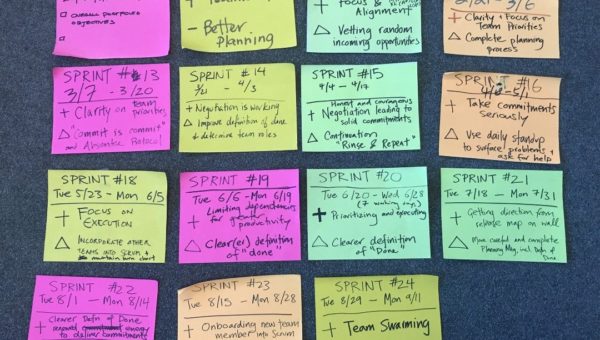 OVERALL PORTFOLIO
OBJECTIVES
- Better
Planning
Focus &
Alignment
△ Vetting random
incoming opportunities
- 3/6
+ Clarity + Focus on
Team Priorities
△ Complete planning
process
SPRINT #13
3/7 - 3/20
+ Clarity on team
priorities
△ "Commit is commit"
and Absentee Protocol
SPRINT #14
3/21 - 4/3
+ Negotiation is working
△ Improve definition of done
+ determine team roles
SPRINT #15
4/4 - 4/17
Honest and courageous
+ Negotiation leading to
solid commitments
△ Continuation
"Rinse & Repeat"
SPRINT #16
- 5/1
+ Take commitments
seriously
△ Use daily standup
to surface problems +
ask for help
SPRINT #18
Tue 5/23 - Mon 6/5
+ FOCUS ON
EXECUTION
△ INCORPORATE OTHER
TEAMS INTO SCRUM +
maintain burn chart
SPRINT #19
Tue 6/6 - Mon 6/19
Limiting dependencies
+ for greater
productivity
△ Clear(er) definition
of "done"
SPRINT #20
Tue 6/20 - Wed 6/28
(7 working days)
+ Prioritizing and executing
△ Clearer definition
of "Done"
SPRINT #21
Tue 7/18 - Mon 7/31
+ Getting direction from
release map on wall
△ More careful and complete
Planning Mtg, incl. Defn of
Done
SPRINT #22
Tue 8/1 - Mon 8/14
Clearer Defn of Done
+ renewed energy
to deliver commitments
SPRINT #23
Tue 8/15 - Mon 8/28
+ Onboarding new team
member into Scrum
SPRINT #24
Tue 8/29 - Mon 9/11
+ Team Swarming